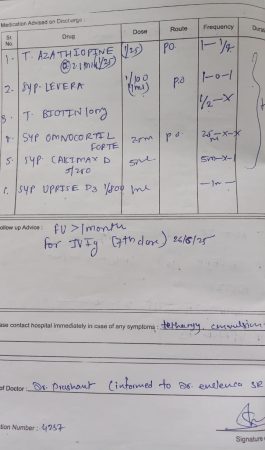 Medication Advised on Discharge :
Sr. No. Drug Dose Route Frequency Dura
1. T. AZATHIOPINE (1/25) PO 1-1/2
2. SYP. LEVERA 1/100 (1ml) PO 1-0-1
3. T. BIOTIN 10mg 1/2-X
4. SYP OMNOCORTIL FORTE PO
5. SYP. CALCIMAX D 5/250 5ml
6. SYP UPRISE D3 1ml
ollow up Advice : FU >1month
For IVIg (7th dose) 26/8/25
ase contact hospital immediately in case of any symptoms : lethargy, convulsion
of Doctor : Dr. Prashant (informed to Dr.
tion Number : 4257
Signature